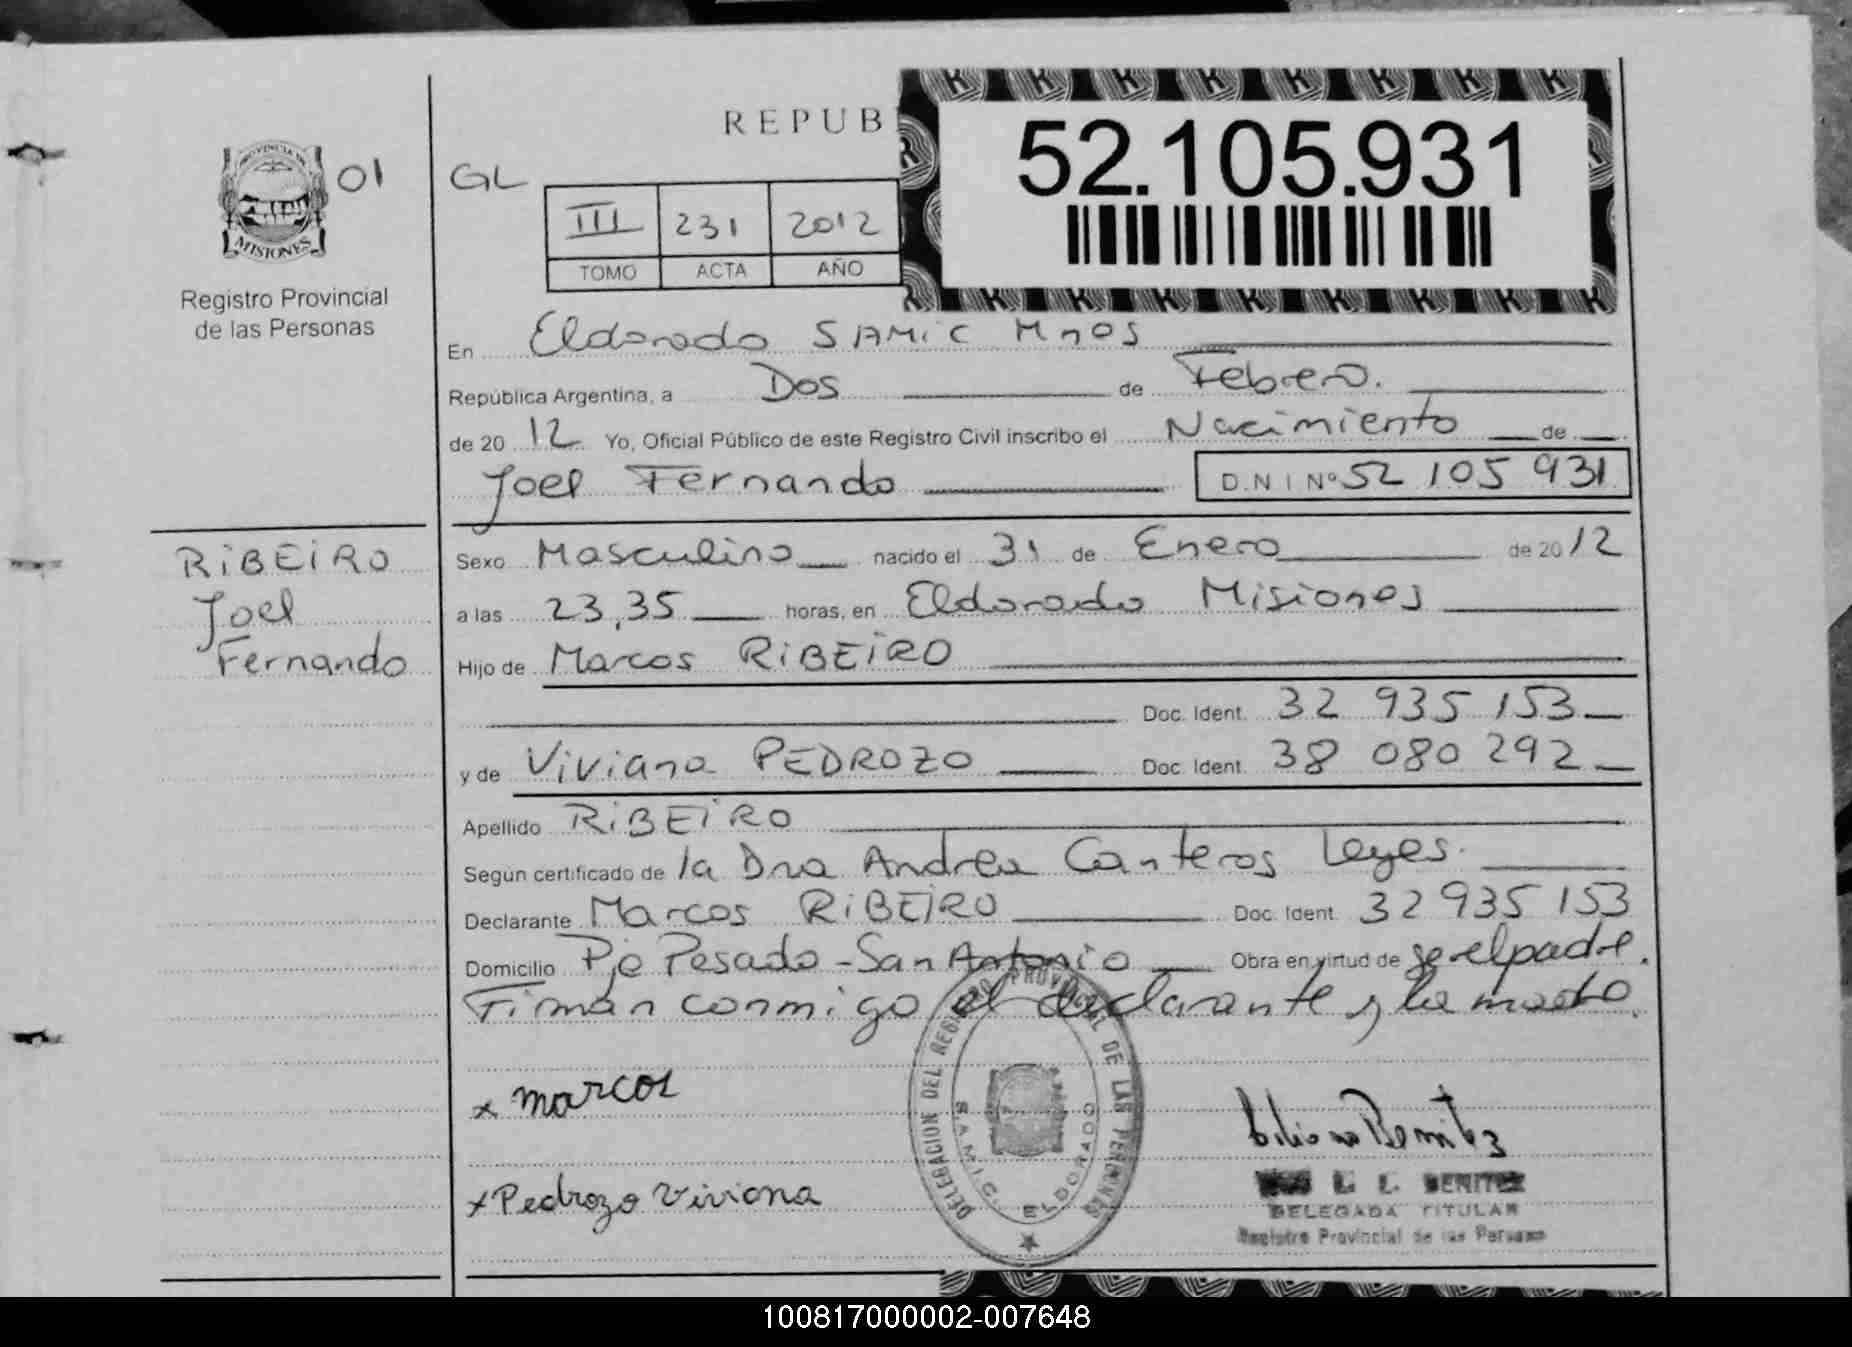 REPUB
52.105.931
PROVINCIA DE
MISIONES
01
GL
III 231 2012
TOMO ACTA AÑO
Registro Provincial
de las Personas
En Eldorado SAMIC Mnes
República Argentina, a Dos de Febrero.
de 2012 Yo, Oficial Público de este Registro Civil inscribo el Nacimiento de
Joel Fernando D.N.I Nº 52 105 931
RIBEIRO
Joel
Fernando
Sexo Masculino nacido el 31 de Enero de 2012
a las 23,35 horas, en Eldorado Misiones
Hijo de Marcos RIBEIRO
Doc. Ident. 32 935 153
y de Viviana PEDROZO Doc. Ident. 38 080 292
Apellido RIBEIRO
Según certificado de la Dra Andrea Canteros Leyes.
Declarante Marcos RIBEIRO Doc. Ident. 32 935 153
Domicilio Pje Pesado - San Antonio Obra en virtud de ser el padre.
Firman conmigo el declarante y la madre.
x marcos
x Pedrozo Viviana
DELEGACION DEL REGISTRO PROVINCIAL DE LAS PERSONAS
S.A.M.I.C. ELDORADO
Benitez
L. BENITEZ
DELEGADA TITULAR
Registro Provincial de las Personas
100817000002-007648